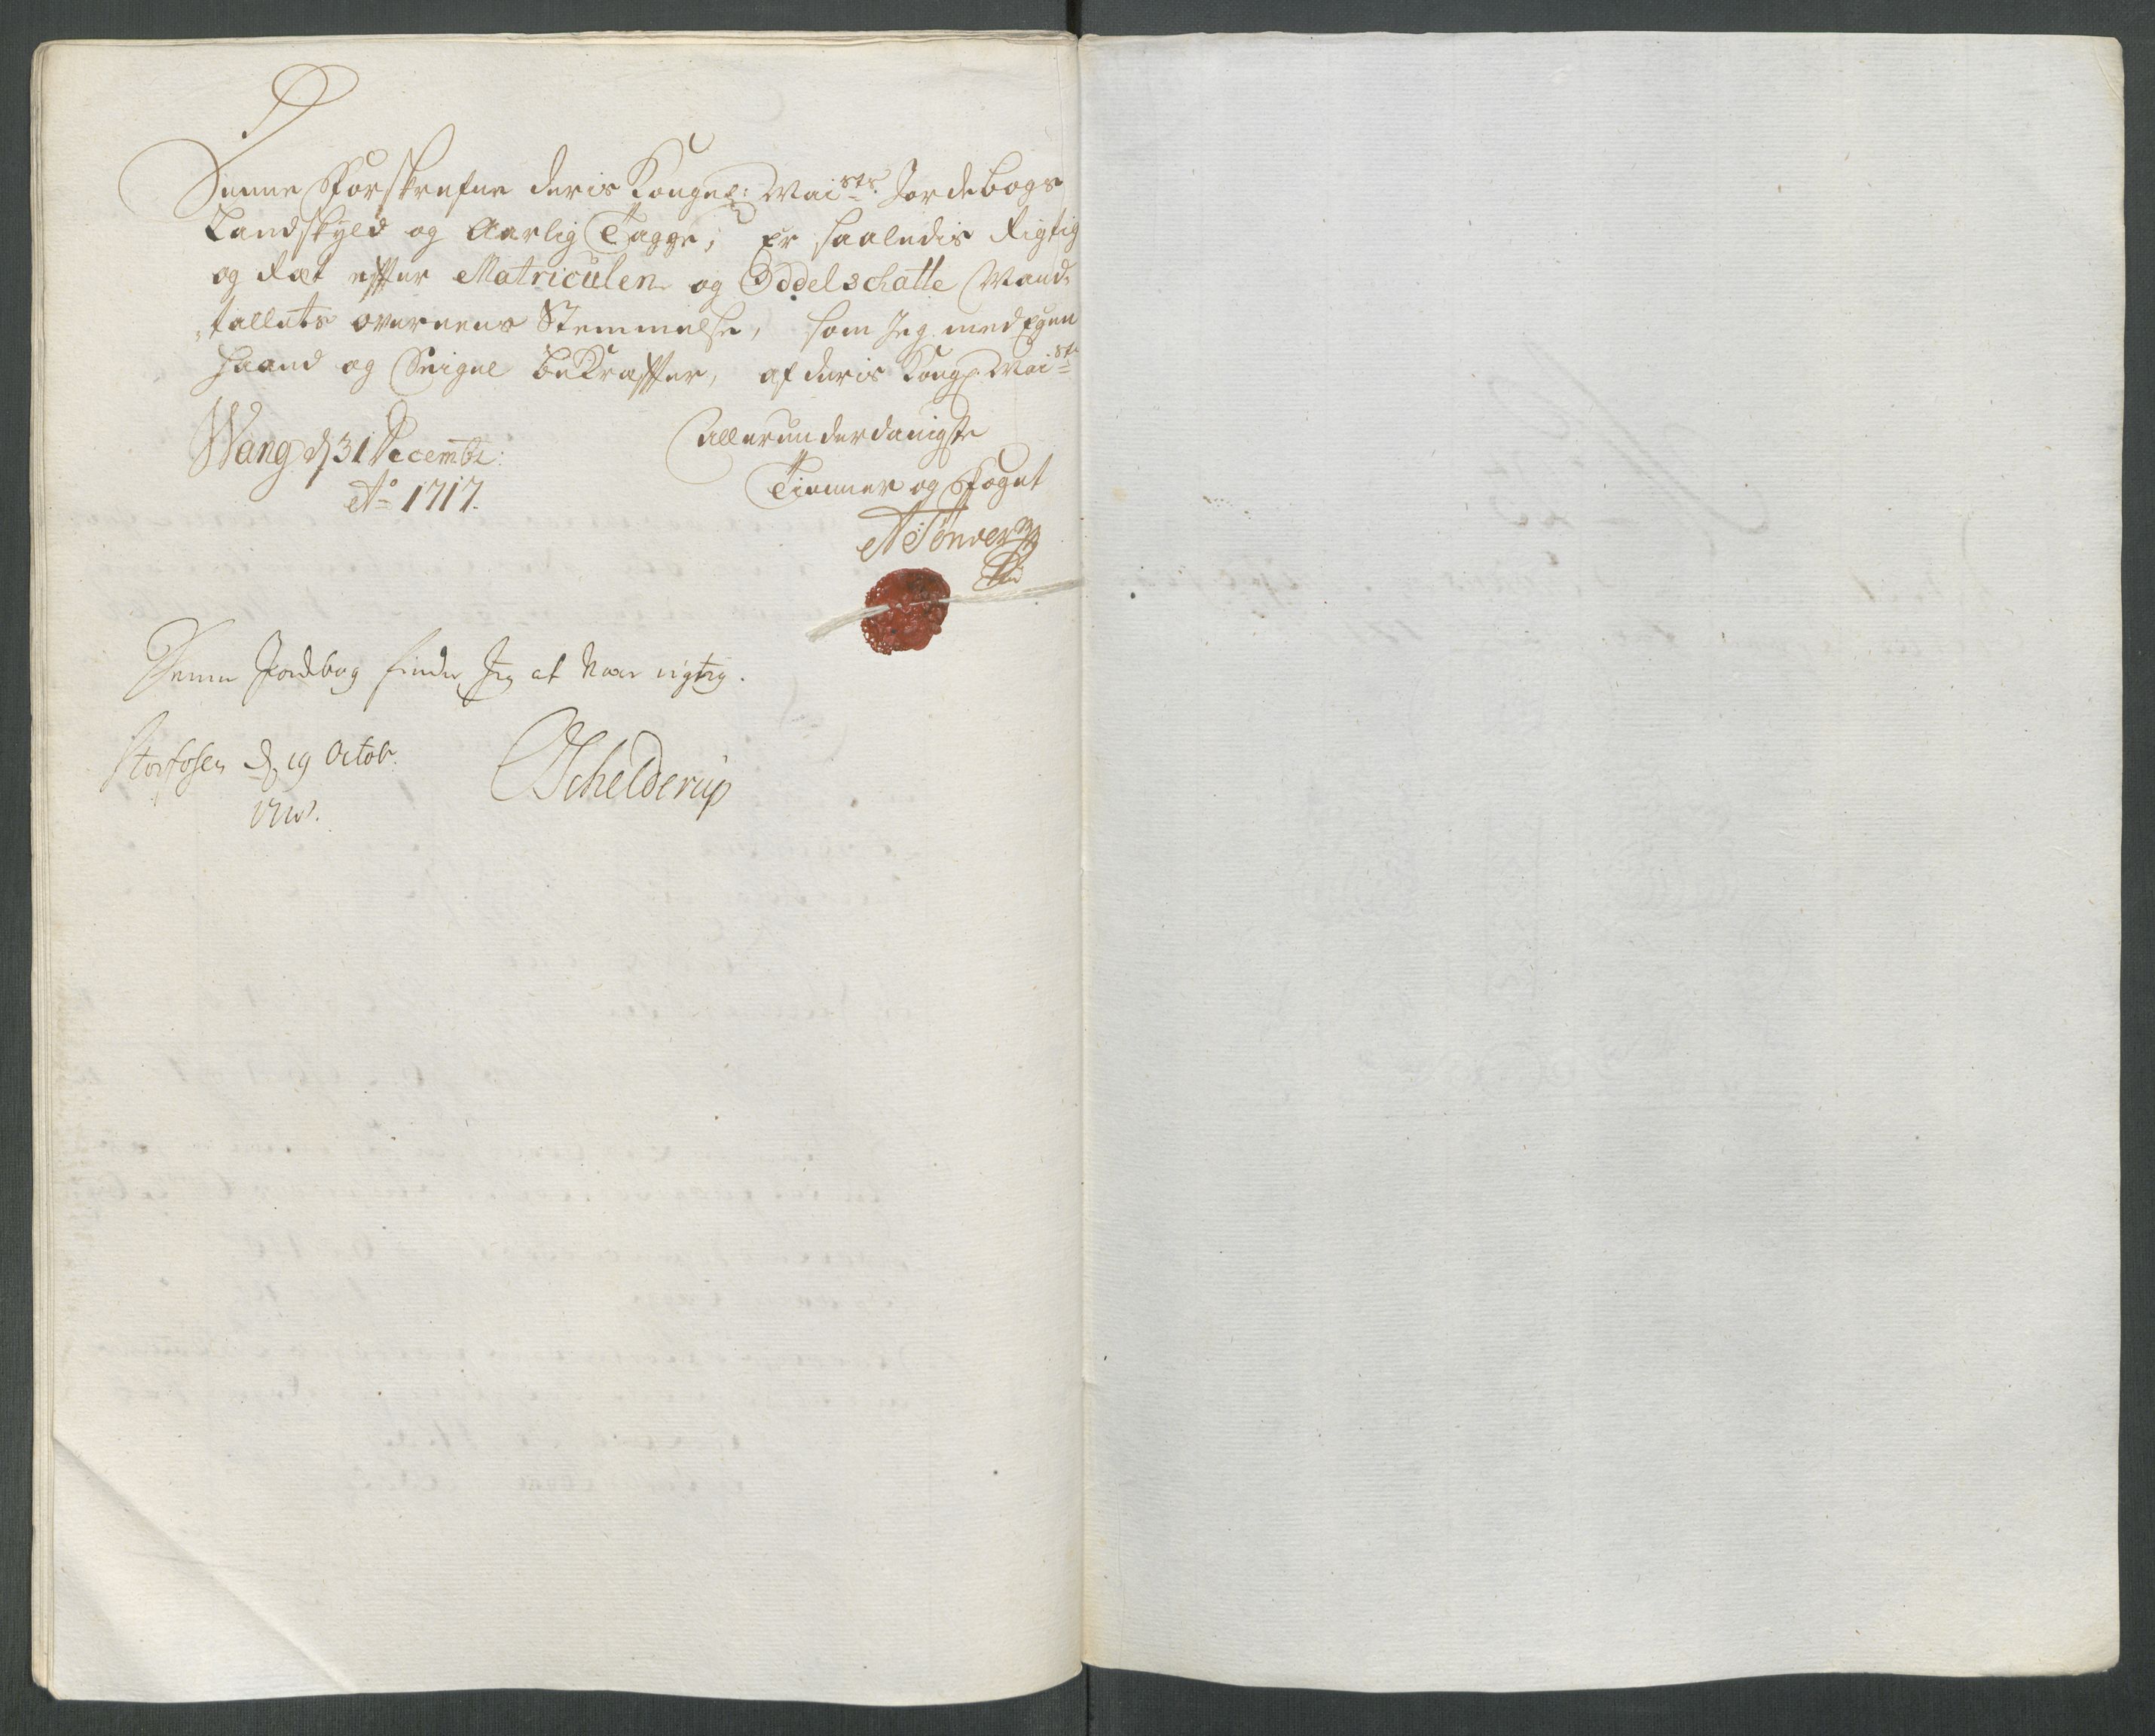 Denne Forskrefne deris Kongel: Mai.sts. Jordebogs
Landskyld og Aarlig Tagge, Er saaledis Rigtig
og Ræt effter Matriculen og Oddelschatte Mand-
tallets overeens Stemmelse, som Jeg med Egen
Haand og Seigne bekraffter, af deris Kongl. Mai.sts
Wang d 31 Decembr:
Ao 1717.
allerunderdanigste
Tienner og Foget
A Tønder
Denne Jordbog finder Jeg at være rigtig.
Storfosen d. 19 Octobr.
1718.
Schelderup